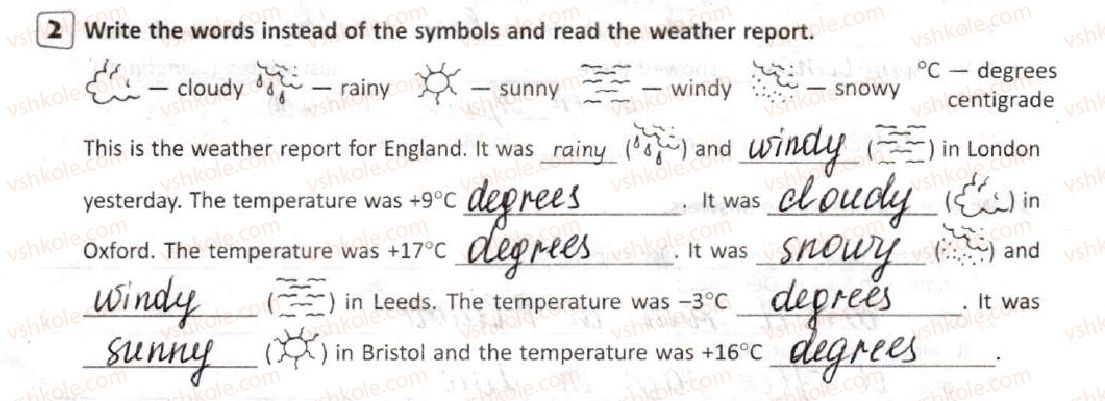 2 Write the words instead of the symbols and read the weather report.
— cloudy — rainy — sunny — windy — snowy °C — degrees
centigrade
This is the weather report for England. It was rainy ( ) and windy ( ) in London
yesterday. The temperature was +9°C degrees. It was cloudy ( ) in
Oxford. The temperature was +17°C degrees. It was snowy ( ) and
windy ( ) in Leeds. The temperature was –3°C degrees. It was
sunny ( ) in Bristol and the temperature was +16°C degrees.
vshkole.com